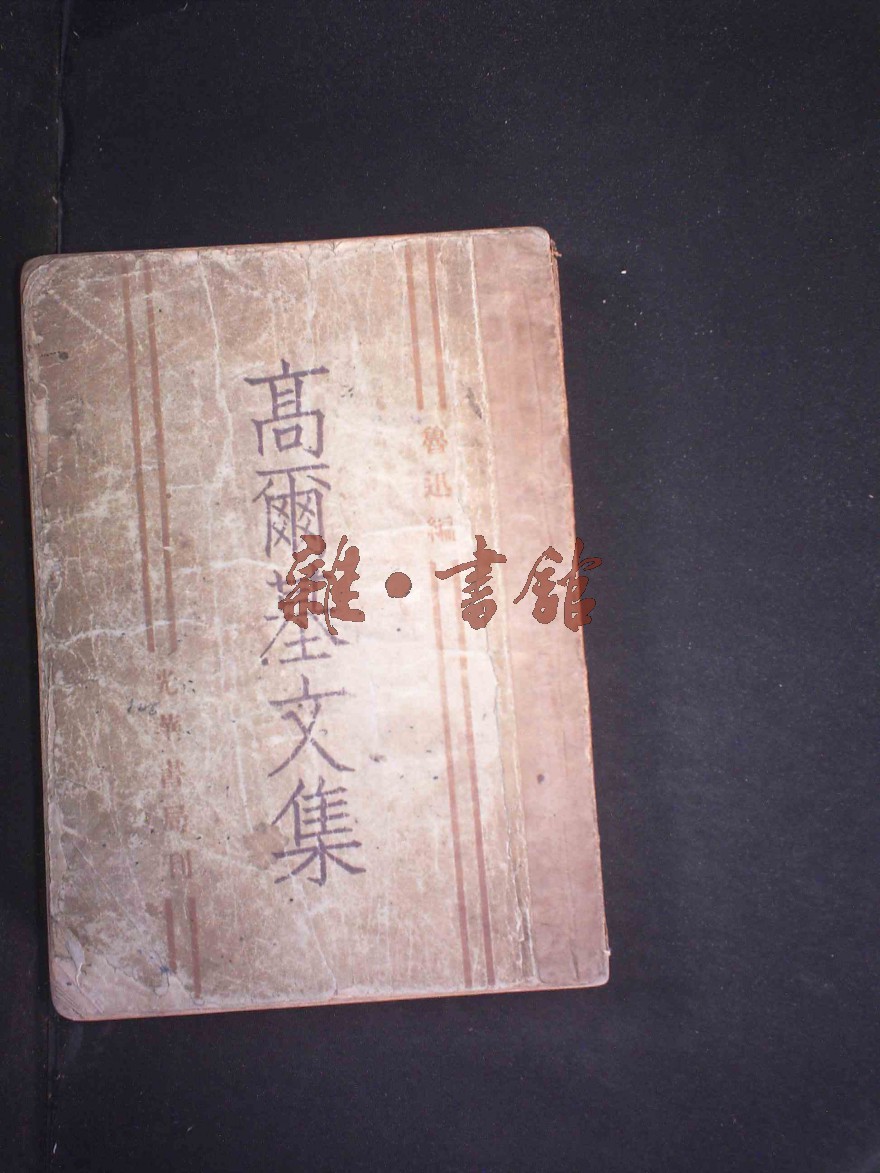 魯迅編
高爾基文集
光華書局刊
雜·書館